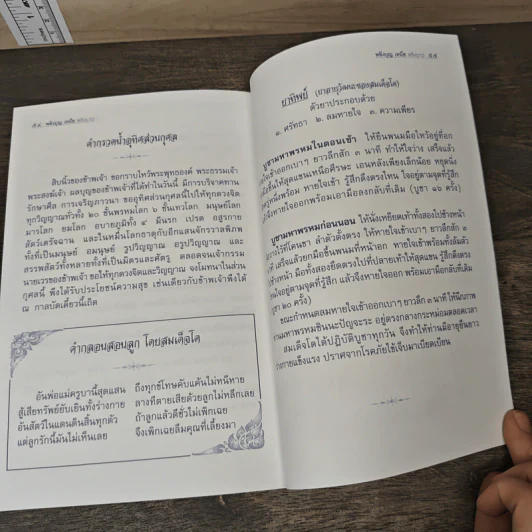 ๕๔ พลังบุญ เหนือ
คำกรวดน้ำอุทิศส่วนกุศล
สิบนิ้วของข้าพเจ้า ขอกราบไหว้พระพุทธองค์ พระธรรมเจ้า
พระสงฆ์เจ้า ผลบุญของข้าพเจ้าที่ได้ทำในวันนี้ มีการบริจาคทาน
รักษาศีล การเจริญภาวนา ขออุทิศส่วนกุศลนี้ไปให้ทุกดวงจิต
ทุกวิญญาณทั่วทั้ง ๒๐ ชั้นพรหมโลก ๖ ชั้นเทวโลก มนุษย์โลก
มารโลก ยมโลก อบายภูมิทั้ง ๔ มีนรก เปรต อสูรกาย
สัตว์เดรัจฉาน และในหมื่นโลกธาตุกับอีกแสนจักรวาลพิภพ
ทั้งที่เป็นมนุษย์ อมนุษย์ รูปวิญญาณ อรูปวิญญาณ และ
สรรพสัตว์ทั้งหลายทั้งที่เป็นมิตรและศัตรู ตลอดจนเจ้ากรรม
นายเวรของข้าพเจ้า ขอให้ทุกดวงจิตและวิญญาณ จงโมทนาในส่วน
กุศลนี้ พึงได้รับประโยชน์ความสุข เช่นเดียวกับข้าพเจ้าพึงได้
ณ กาลบัดเดี๋ยวนี้เถิด
คำกลอนสอนลูก โดยสมเด็จโต
อันพ่อแม่ครูบานี้สุดแสน ถึงทุกข์โทษคับแค้นไม่หนีหาย
สู้เสียทรัพย์ยับเยินทั้งร่างกาย ลางที่ตายเสียด้วยลูกไม่หลีกเลย
อันสัตว์ในแดนดินสิ้นทุกตัว ถ้าลูกแล้วดีชั่วไม่เพิกเฉย
แต่ลูกรักนี้มันไม่เห็นเลย จึงเพิกเฉยลืมคุณที่เลี้ยงมา
พลังบุญ เหนือ ๕๕
ยาทิพย์ (ยาอายุวัฒนะของสมเด็จโต)
ตัวยาประกอบด้วย
๑. ศรัทธา ๒. ลมหายใจ ๓. ความเพียร
บูชามหาพรหมในตอนเช้า ให้ยืนพนมมือไหว้อยู่ที่อก
หายใจเข้าออกเบา ๆ ยาวลึกสัก ๓ นาที ทำให้ใจว่าง เสร็จแล้ว
มือขึ้นให้สุดแขนเหนือศีรษะ เอนหลังเพียงเล็กน้อย หยุดนิ่ง
อยู่หนึ่งพร้อม หายใจเข้า รู้สึกตึงตรงไหน ใจอยู่ตามจุดที่รู้สึก
แล้วจึงหายใจออกพร้อมเอามือลงกลับที่เดิม (บูชา ๑๖ ครั้ง)
บูชามหาพรหมก่อนนอน ให้นั่งเหยียดเท้าทั้งสองไปข้างหน้า
วางไว้ที่โคนขา ลำตัวตั้งตรง ให้หายใจเข้าเบา ๆ ยาวลึก ๒
นาที เสร็จแล้วยกมือขึ้นพนมที่หน้าอก หายใจเข้าพร้อมทั้งก้มตัว
ไปข้างหน้า มือทั้งสองยืดตรงไปที่ปลายเท้าให้สุดแขน รู้สึกตึงตรง
ไหนใจอยู่ตามจุดที่รู้สึก แล้วจึงหายใจออก พร้อมเอามือกลับที่เดิม
(บูชา ๒๐ ครั้ง)
ขณะกำหนดลมหายใจเข้าออกเบา ๆ ยาวลึก ๓ นาที ให้นึกภาพ
มหาพรหมชินนะปัญจะระ อยู่ตรงกลางกระหม่อมตลอดเวลา
สมเด็จโตได้ปฏิบัติบูชาทุกวัน จึงทำให้ท่านมีอายุยืนยาว
ร่างกายแข็งแรง ปราศจากโรคภัยไข้เจ็บมาเบียดเบียน